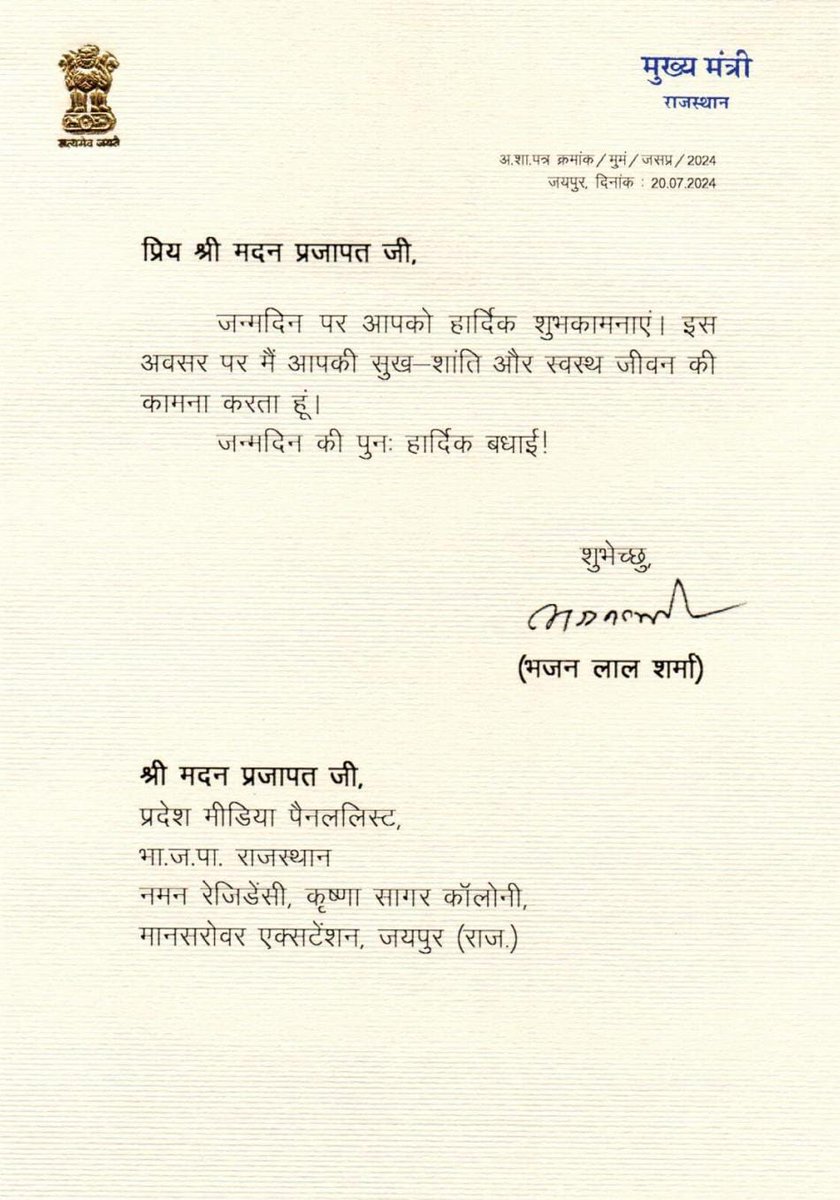 सत्यमेव जयते
मुख्य मंत्री
राजस्थान
अ.शा.पत्र क्रमांक/मुमं/जसप्र/2024
जयपुर, दिनांक : 20.07.2024
प्रिय श्री मदन प्रजापत जी,
जन्मदिन पर आपको हार्दिक शुभकामनाएं। इस
अवसर पर मैं आपकी सुख–शांति और स्वस्थ जीवन की
कामना करता हूं।
जन्मदिन की पुनः हार्दिक बधाई!
शुभेच्छु,
(भजन लाल शर्मा)
श्री मदन प्रजापत जी,
प्रदेश मीडिया पैनललिस्ट,
भा.ज.पा. राजस्थान
नमन रेजिडेंसी, कृष्णा सागर कॉलोनी,
मानसरोवर एक्सटेंशन, जयपुर (राज.)